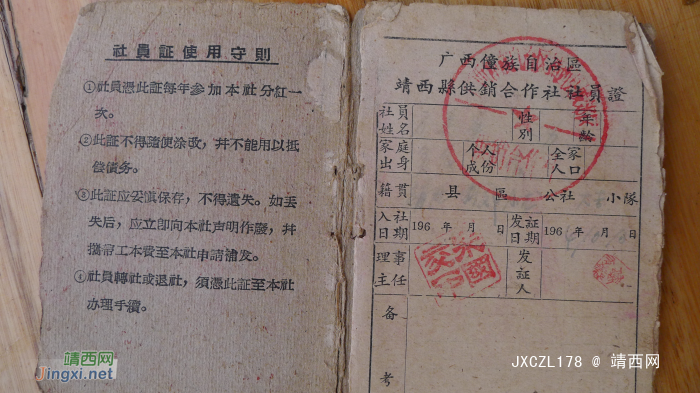 社員証使用守則
①社員憑此証每年参加本社分紅一
次。
②此証不得隨便涂改，幷不能用以抵
償債务。
③此証应妥愼保存，不得遺失。如丟
失后，应立卽向本社声明作廢，幷
携帶工本費至本社申請補发。
④社員轉社或退社，須憑此証至本社
办理手續。
靖西网
Jingxi.net
广西僮族自治區
靖西縣供銷合作社社員證
社員姓名 性別 年齡
家庭出身 个人成份 全家人口
籍貫 县 區 公社 小隊
入社日期 196 年 月 日 发証日期 196 年 月 日
理事主任 发証人
备
考
JXCZL178 @ 靖西网